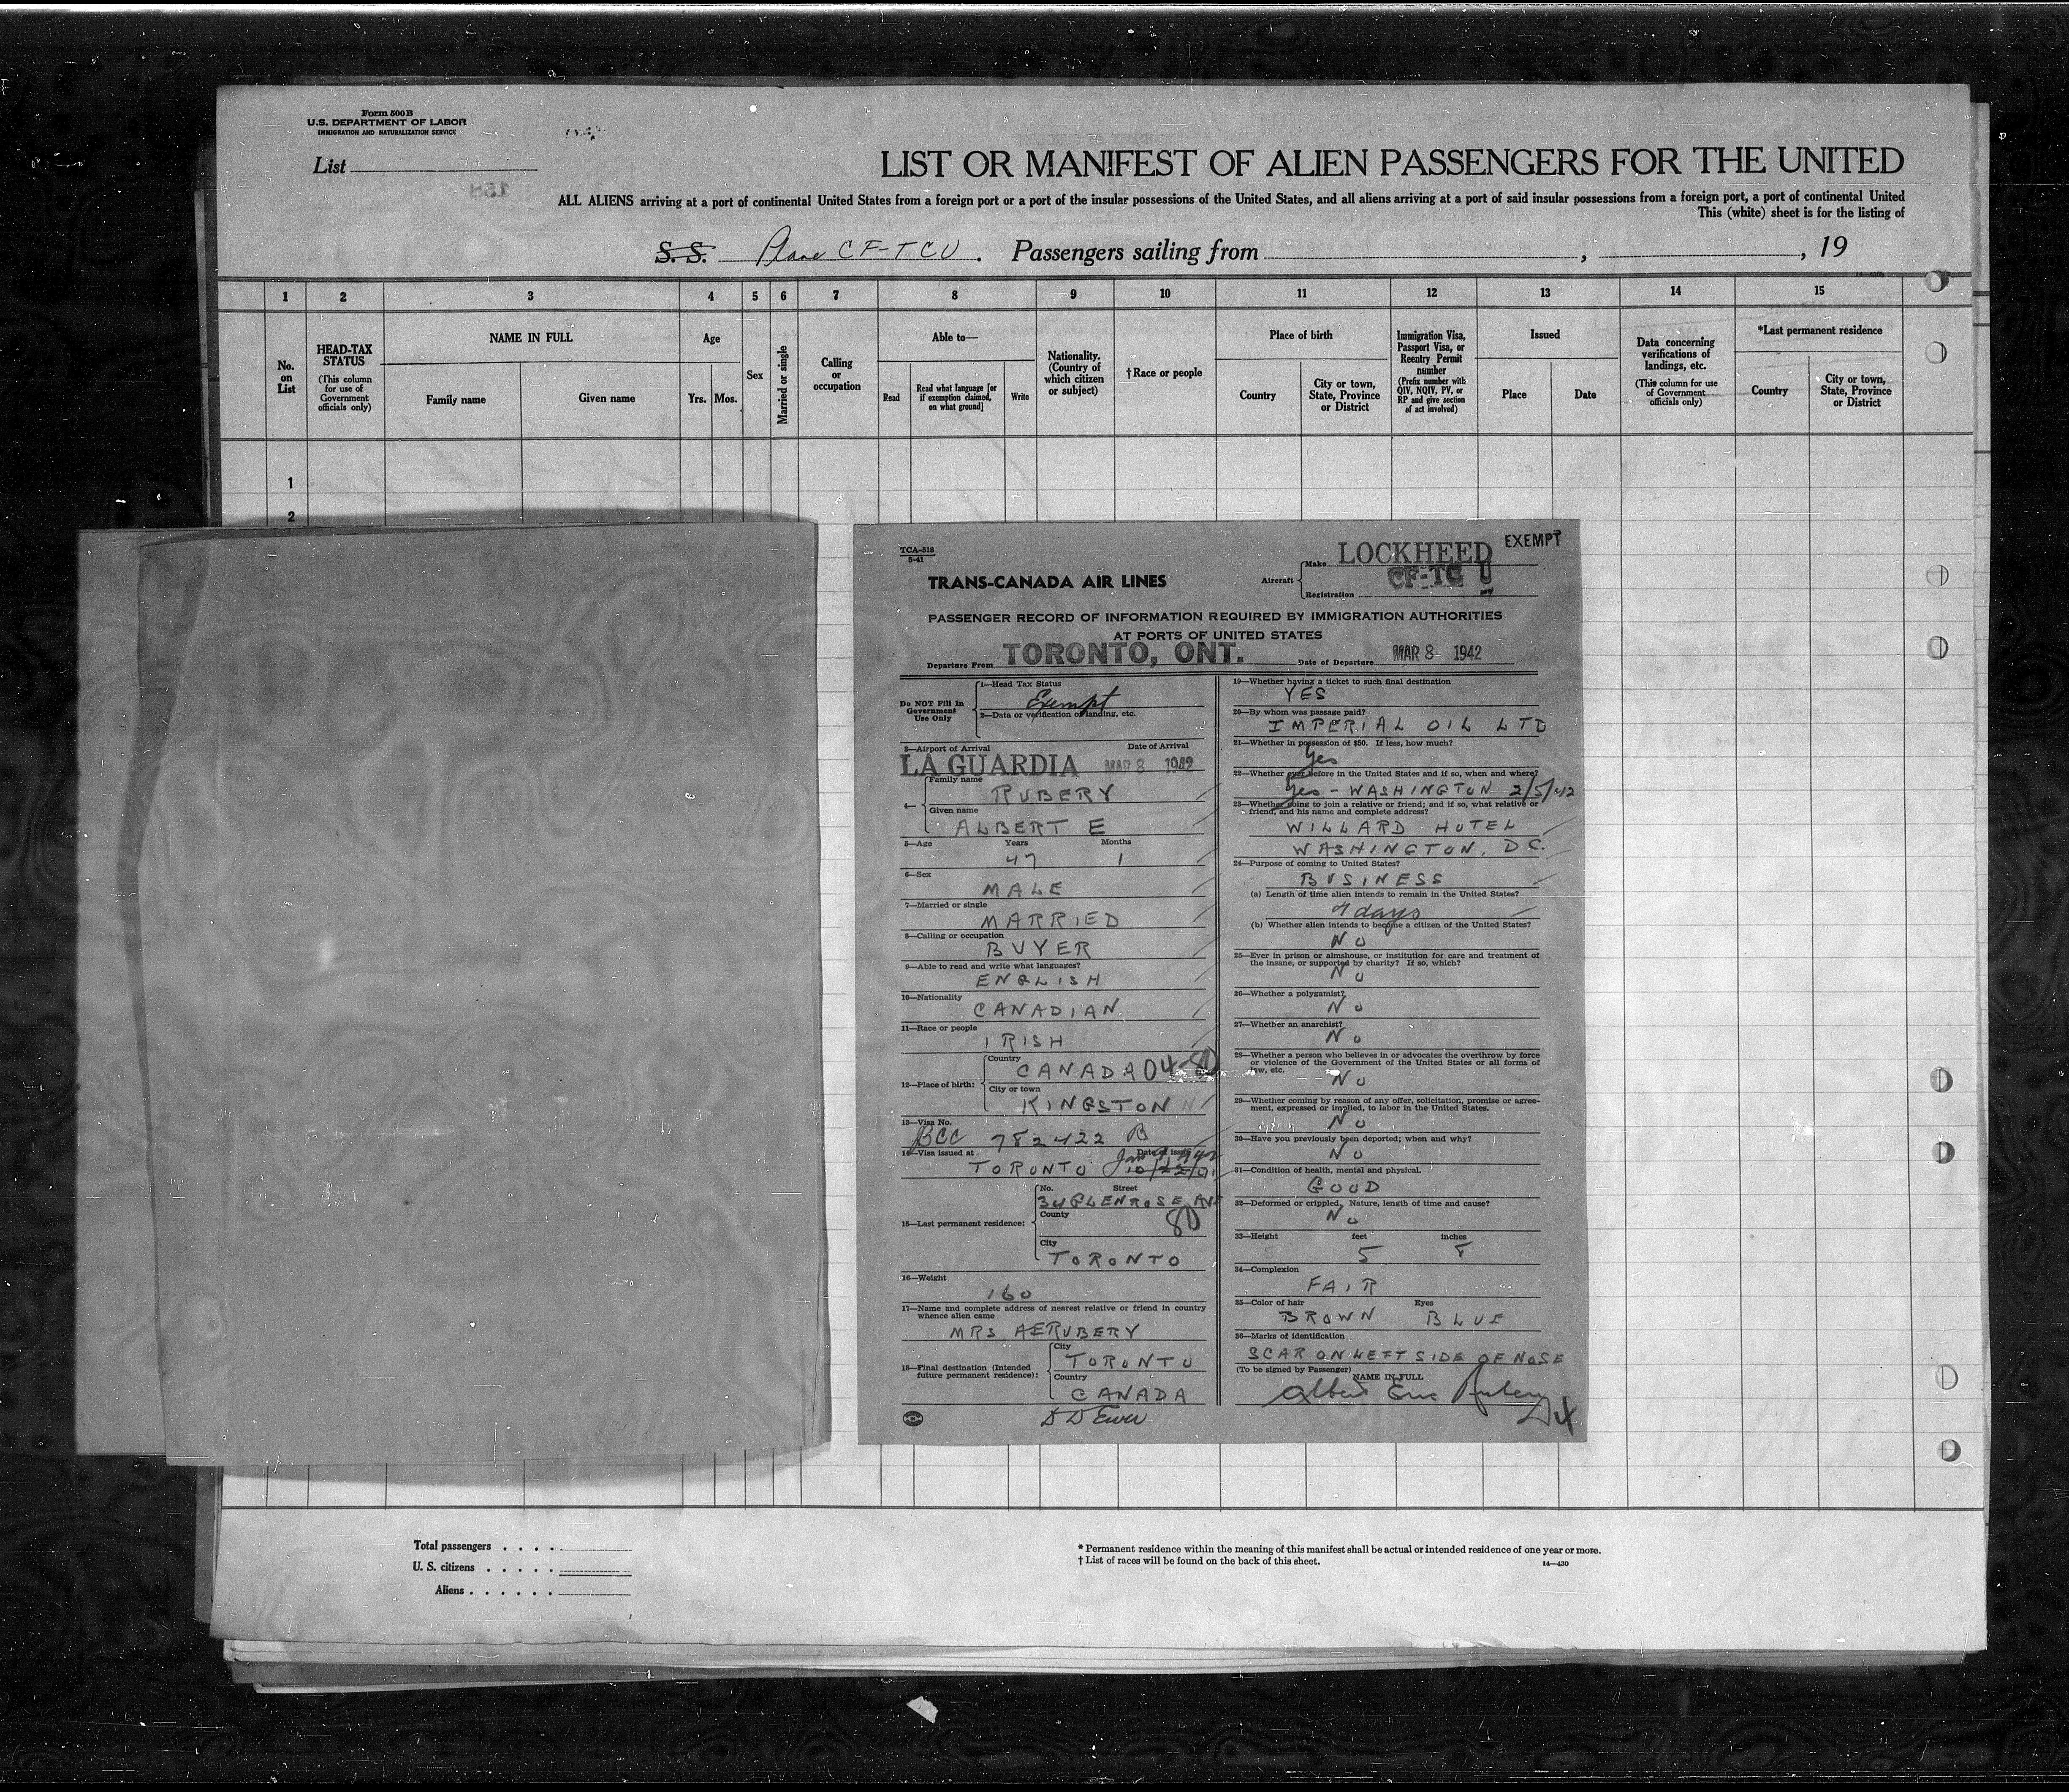 Form 500 B
U.S. DEPARTMENT OF LABOR
IMMIGRATION AND NATURALIZATION SERVICE
List
158
LIST OR MANIFEST OF ALIEN PASSENGERS FOR THE UNITED
ALL ALIENS arriving at a port of continental United States from a foreign port or a port of the insular possessions of the United States, and all aliens arriving at a port of said insular possessions from a foreign port, a port of continental United
This (white) sheet is for the listing of
S. S. Plane CF-TCU. Passengers sailing from , , 19
1 2 3 4 5 6 7 8 9 10 11 12 13 14 15
No. on List
HEAD-TAX STATUS
(This column for use of Government officials only)
NAME IN FULL
Family name
Given name
Age
Yrs. Mos.
Sex
Married or single
Calling or occupation
Able to—
Read
Read what language [or if exemption claimed, on what ground]
Write
Nationality. (Country of which citizen or subject)
†Race or people
Place of birth
Country
City or town, State, Province or District
Immigration Visa, Passport Visa, or Reentry Permit number
(Prefix number with QIV, NQIV, PV, or RP and give section of act involved)
Issued
Place
Date
Data concerning verifications of landings, etc.
(This column for use of Government officials only)
*Last permanent residence
Country
City or town, State, Province or District
1
2
TCA-518
5-41
TRANS-CANADA AIR LINES
EXEMPT
Aircraft
Make LOCKHEED
Registration CF-TCU
PASSENGER RECORD OF INFORMATION REQUIRED BY IMMIGRATION AUTHORITIES
AT PORTS OF UNITED STATES
Departure From TORONTO, ONT. Date of Departure MAR 8 1942
Do NOT Fill In
Government
Use Only
1—Head Tax Status
Exempt
2—Data or verification of landing, etc.
3—Airport of Arrival Date of Arrival
LA GUARDIA MAR 8 1942
4—
Family name
RUBERY
Given name
ALBERT E
5—Age Years Months
47 1
6—Sex
MALE
7—Married or single
MARRIED
8—Calling or occupation
BUYER
9—Able to read and write what languages?
ENGLISH
10—Nationality
CANADIAN
11—Race or people
IRISH
12—Place of birth:
Country
CANADA 04
City or town
KINGSTON
13—Visa No.
BCC 782422 B
14—Visa issued at Date of issue
TORONTO
15—Last permanent residence:
No. Street
34 GLENROSE AVE
County
80
City
TORONTO
16—Weight
160
17—Name and complete address of nearest relative or friend in country
whence alien came
MRS AE RUBERY
18—Final destination (Intended
future permanent residence):
City
TORONTO
Country
CANADA
19—Whether having a ticket to such final destination
YES
20—By whom was passage paid?
IMPERIAL OIL LTD
21—Whether in possession of $50. If less, how much?
Yes
22—Whether ever before in the United States and if so, when and where?
Yes - WASHINGTON 2/5/42
23—Whether going to join a relative or friend; and if so, what relative or
friend, and his name and complete address?
WILLARD HOTEL
WASHINGTON, D.C.
24—Purpose of coming to United States?
BUSINESS
(a) Length of time alien intends to remain in the United States?
7 days
(b) Whether alien intends to become a citizen of the United States?
NO
25—Ever in prison or almshouse, or institution for care and treatment of
the insane, or supported by charity? If so, which?
NO
26—Whether a polygamist?
NO
27—Whether an anarchist?
NO
28—Whether a person who believes in or advocates the overthrow by force
or violence of the Government of the United States or all forms of
law, etc.
NO
29—Whether coming by reason of any offer, solicitation, promise or agree-
ment, expressed or implied, to labor in the United States.
NO
30—Have you previously been deported; when and why?
NO
31—Condition of health, mental and physical.
GOOD
32—Deformed or crippled, Nature, length of time and cause?
NO
33—Height feet inches
5 8
34—Complexion
FAIR
35—Color of hair Eyes
BROWN BLUE
36—Marks of identification
SCAR ON LEFT SIDE OF NOSE
(To be signed by Passenger)
NAME IN FULL
Albert Eric Rubery
Total passengers . . . .
U. S. citizens . . . . .
Aliens . . . . . .
* Permanent residence within the meaning of this manifest shall be actual or intended residence of one year or more.
† List of races will be found on the back of this sheet.
14—430